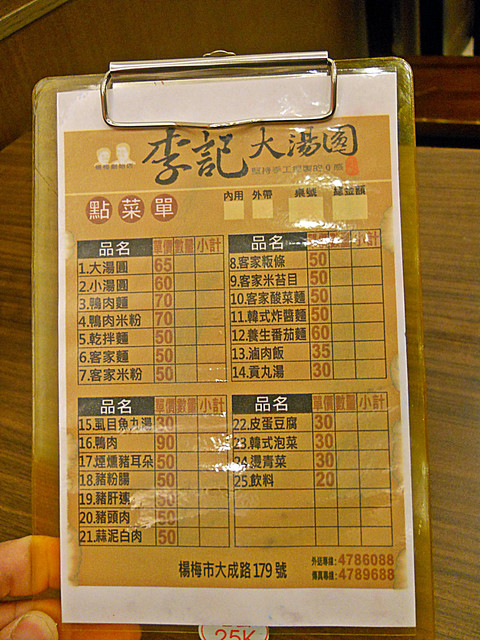 李記大湯圓
點菜單
內用 外帶 桌號 總金額
品名 單價 數量 小計
1.大湯圓 65
2.小湯圓 60
3.鴨肉麵 70
4.鴨肉米粉 70
5.乾拌麵 50
6.客家麵 50
7.客家米粉 50
品名 單價 數量 小計
8.客家粄條 50
9.客家米苔目 50
10.客家酸菜麵 50
11.韓式炸醬麵 50
12.養生番茄麵 60
13.滷肉飯 35
14.貢丸湯 30
品名 單價 數量 小計
15.虱目魚丸湯 30
16.鴨肉 90
17.煙燻豬耳朵 50
18.豬粉腸 50
19.豬肝連 50
20.豬頭肉 50
21.蒜泥白肉 50
品名 單價 數量 小計
22.皮蛋豆腐 30
23.韓式泡菜 30
24.燙青菜 30
25.飲料 20
楊梅市大成路179號
外送專線:4786088
傳真專線:4789688
25K